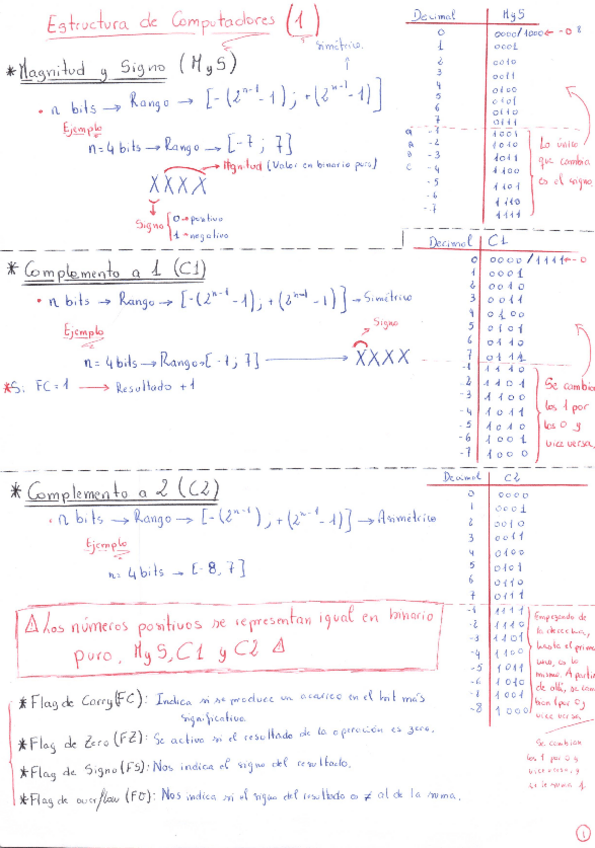 Estructura de Computadores (1)
* Magnitud y Signo (MyS)
simétrico.
• n bits → Rango → [-(2^n-1 -1) ; +(2^n-1 -1)]
Ejemplo
n=4 bits → Rango → [-7 ; 7]
Magnitud (Valor en binario puro)
XXXX
Signo
0 → positivo
1 → negativo
Decimal MyS
0 0000/1000 ← -0
1 0001
2 0010
3 0011
4 0100
5 0101
6 0110
7 0111
-1 1001
-2 1010
-3 1011
-4 1100
-5 1101
-6 1110
-7 1111
Lo único
que cambia
es el signo.
* Complemento a 1 (C1)
• n bits → Rango → [-(2^n-1 -1) ; +(2^n-1 -1)] → Simétrico
Ejemplo
Signo
n=4 bits → Rango → [-7 ; 7] → XXXX
*Si FC=1 → Resultado +1
Decimal C1
0 0000/1111 ← -0
1 0001
2 0010
3 0011
4 0100
5 0101
6 0110
7 0111
-1 1110
-2 1101
-3 1100
-4 1011
-5 1010
-6 1001
-7 1000
Se cambian
los 1 por
los 0 y
viceversa.
* Complemento a 2 (C2)
• n bits → Rango → [-(2^n-1) ; +(2^n-1 -1)] → Asimétrico
Ejemplo
n=4 bits → [-8, 7]
Decimal C2
0 0000
1 0001
2 0010
3 0011
4 0100
5 0101
6 0110
7 0111
-1 1111
-2 1110
-3 1101
-4 1100
-5 1011
-6 1010
-7 1001
-8 1000
Empezando de
la derecha,
hasta el primer
uno, es lo
mismo. A partir
de allí, se cam
bian 1 por 0 y
viceversa.
Se cambian
los 1 por 0 y
viceversa, y
se le suma 1.
⚠ Los números positivos se representan igual en binario
puro, MyS, C1 y C2 ⚠
* Flag de Carry (FC): Indica si se produce un acarreo en el bit más
significativo.
* Flag de Zero (FZ): Se activa si el resultado de la operación es zero.
* Flag de Signo (FS): Nos indica el signo del resultado.
* Flag de overflow (FO): Nos indica si el signo del resultado es ≠ al de la suma.
1